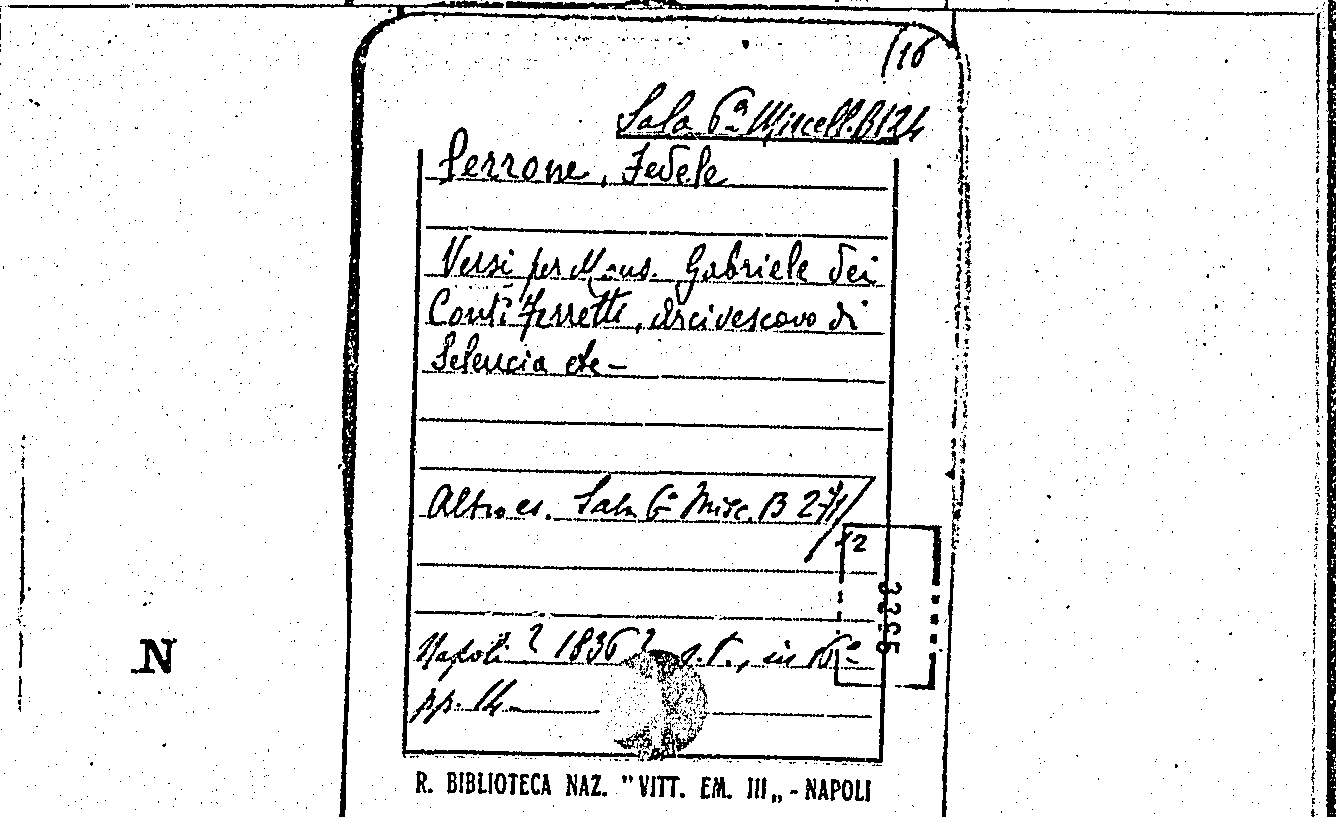 (16
Sala 6ª Miscell. B124
Perrone, Fedele
Versi per Mons. Gabriele dei
Conti Ferretti, Arcivescovo di
Seleucia etc—
Altro es. Sala 6ª Misc. B 271/
12
3365
Napoli ? 1836 ? s.t., in 16°
pp. 14
N
R. BIBLIOTECA NAZ. "VITT. EM. III„ - NAPOLI